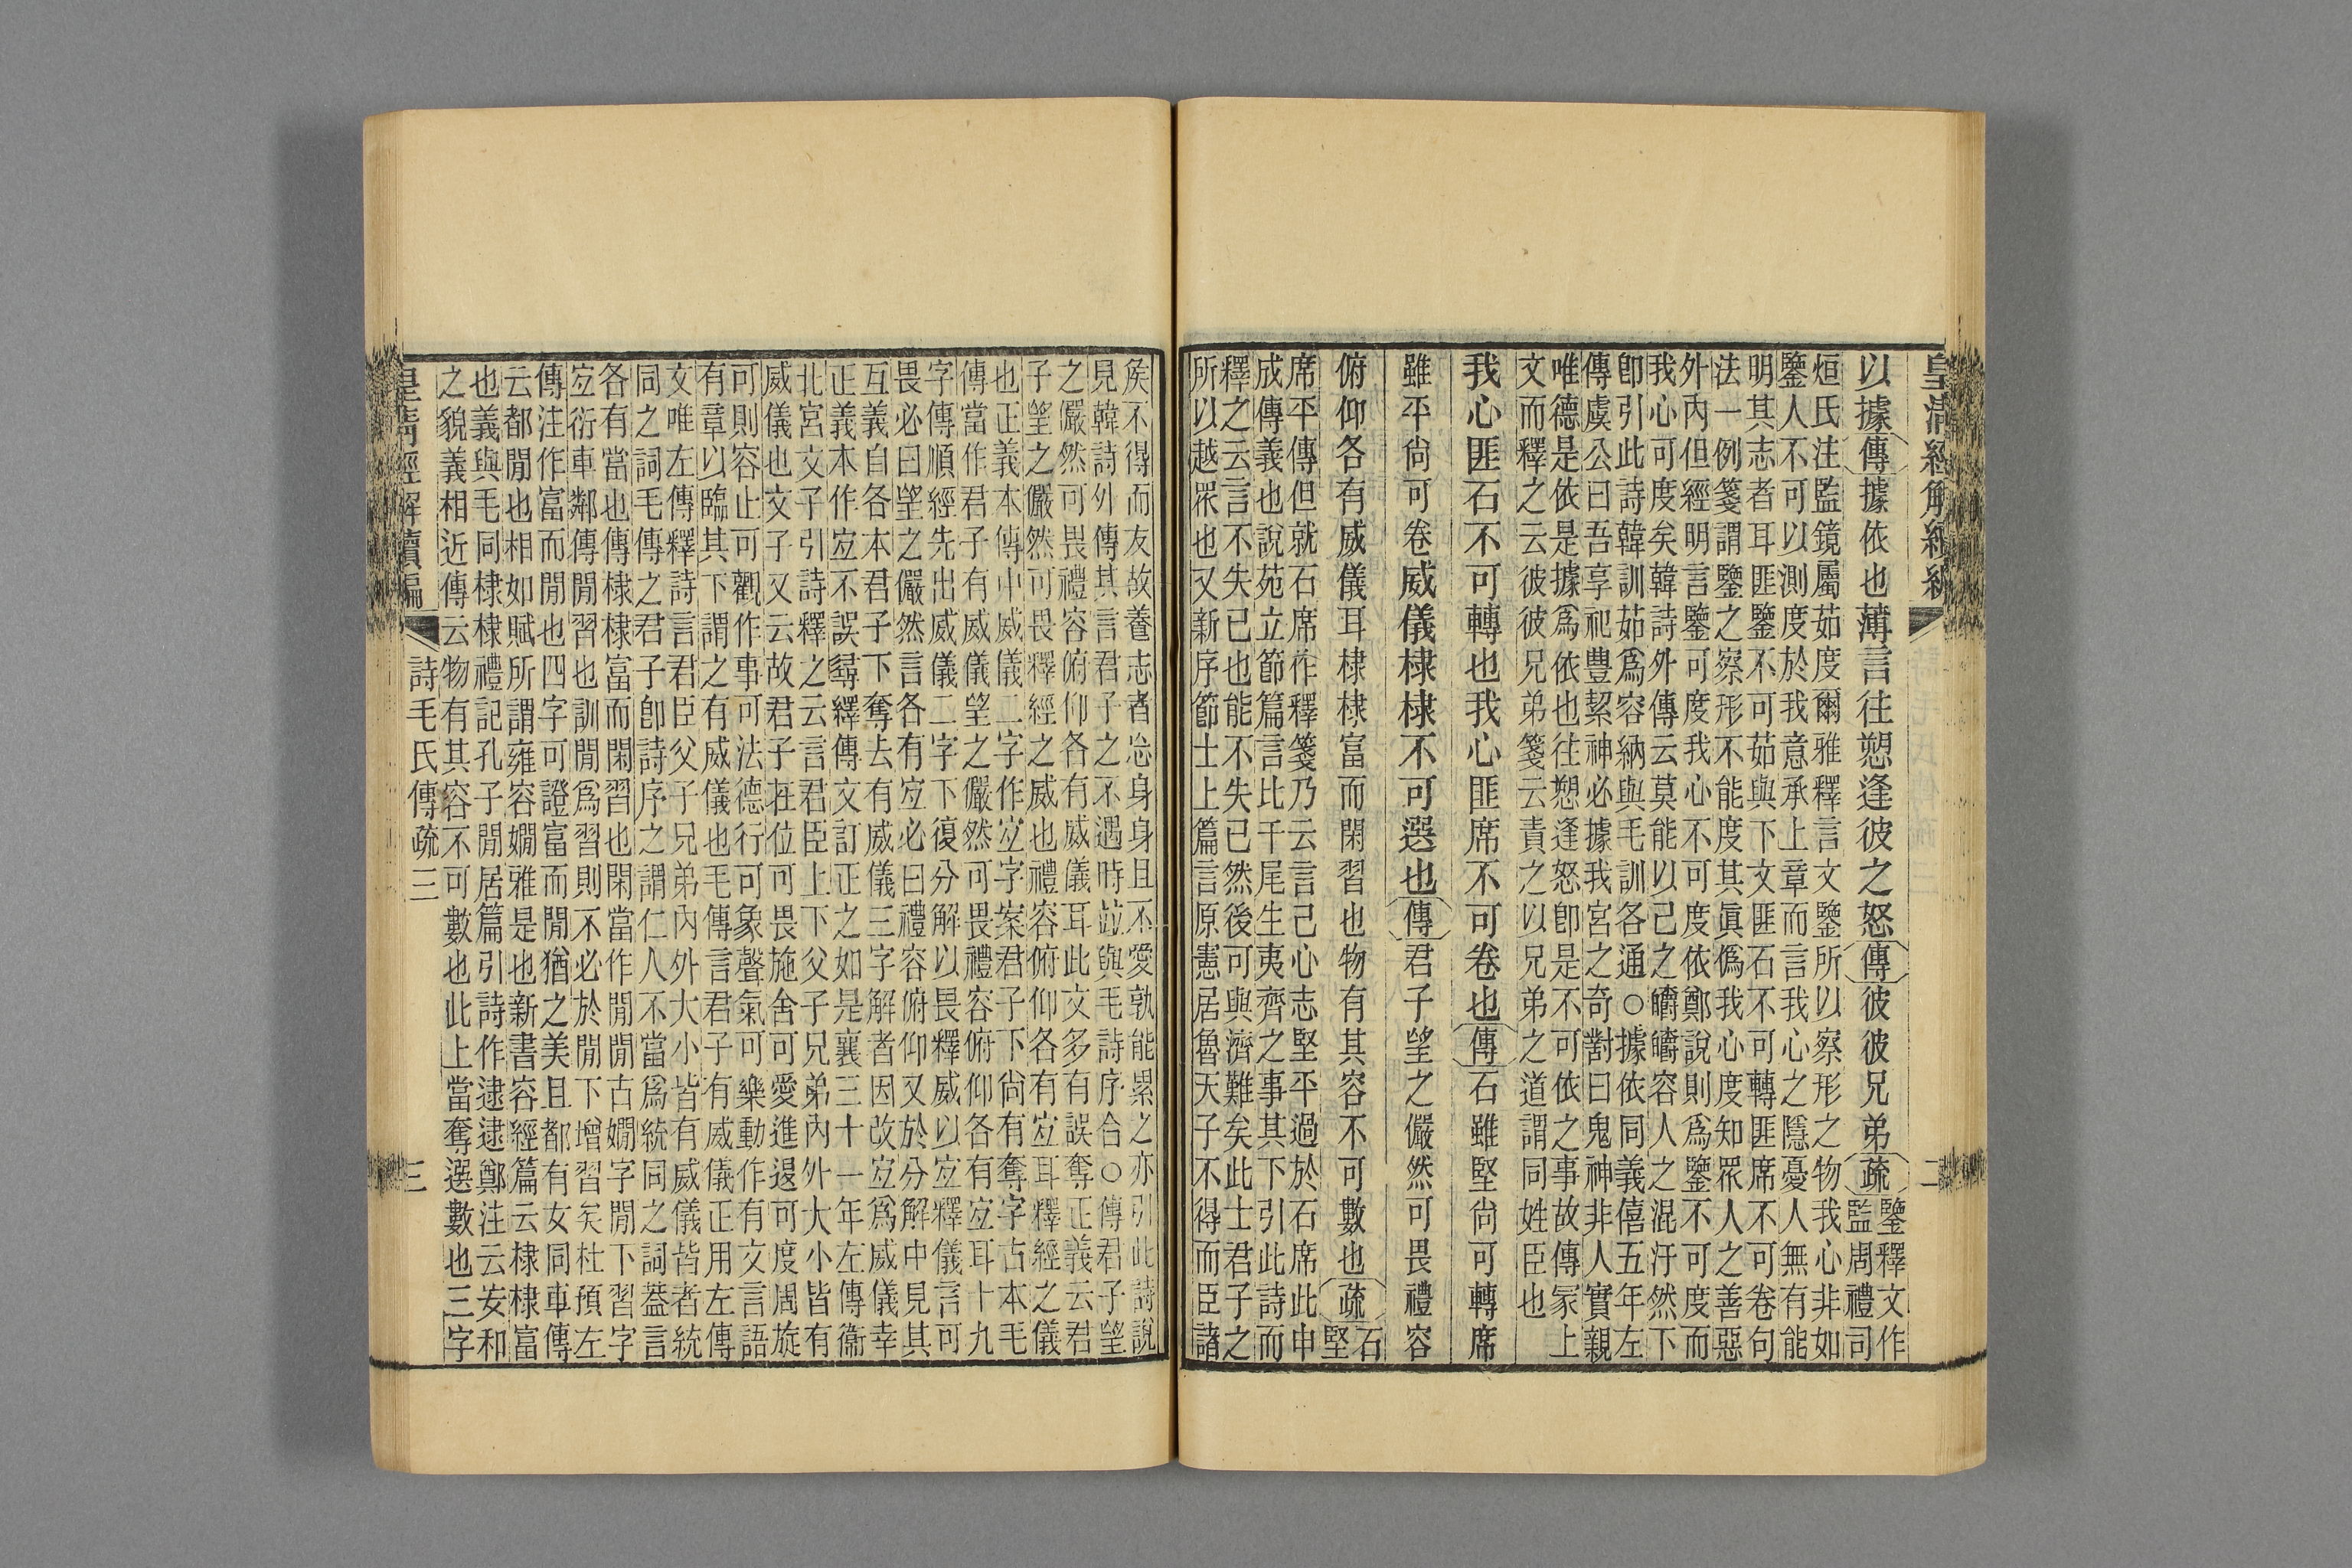 皇清經解續編 二
以據傳據依也薄言往愬逢彼之怒傳彼彼兄弟疏鑒釋文作
監周禮司
烜氏注監鏡屬茹度爾雅釋言文鑒所以察形之物我心非如
鑒人不可以測度於我意承上章而言我心之隱憂人無有能
明其志者耳匪鑒不可茹與下文匪石不可轉匪席不可卷句
法一例箋謂鑒之察形不能度其眞僞我心度知眾人之善惡
外內但經明言鑒可度我心不可度依鄭說則爲鑒不可度而
我心可度矣韓詩外傳云莫能以己之皭皭容人之混汙然下
卽引此詩韓訓茹爲容納與毛訓各通○據依同義僖五年左
傳虞公曰吾享祀豐絜神必據我宮之奇對曰鬼神非人實親
唯德是依是據爲依也往愬逢怒卽是不可依之事故傳冡上
文而釋之云彼彼兄弟箋云責之以兄弟之道謂同姓臣也
我心匪石不可轉也我心匪席不可卷也傳石雖堅尙可轉席
雖平尙可卷威儀棣棣不可選也傳君子望之儼然可畏禮容
俯仰各有威儀耳棣棣富而閑習也物有其容不可數也疏石
堅
席平傳但就石席作釋箋乃云言己心志堅平過於石席此申
成傳義也說苑立節篇言比干尾生夷齊之事其下引此詩而
釋之云言不失已也能不失已然後可與濟難矣此士君子之
所以越眾也又新序節士上篇言原憲居魯天子不得而臣諸
矦不得而友故養志者忘身身且不愛孰能累之亦引此詩說
見韓詩外傳其言君子之不遇時竝與毛詩序合○傳君子望
之儼然可畏禮容俯仰各有威儀耳此文多有誤奪正義云君
子望之儼然可畏釋經之威也禮容俯仰各有宐耳釋經之儀
也正義本傳中威儀二字作宐字案君子下尙有奪字古本毛
傳當作君子有威儀望之儼然可畏禮容俯仰各有宐耳十九
字傳順經先出威儀二字下復分解以畏釋威以宐釋儀言可
畏必曰望之儼然言各有宐必曰禮容俯仰又於分解中見其
互義自各本君子下奪去有威儀三字解者因改宐爲威儀幸
正義本作宐不誤尋繹傳文訂正之如是襄三十一年左傳衞
北宮文子引詩釋之云言君臣上下父子兄弟內外大小皆有
威儀也文子又云故君子在位可畏施舍可愛進退可度周旋
可則容止可觀作事可法德行可象聲氣可樂動作有文言語
有章以臨其下謂之有威儀也毛傳言君子有威儀正用左傳
文唯左傳釋詩言君臣父子兄弟內外大小皆有威儀皆者統
同之詞毛傳之君子卽詩序之謂仁人不當爲統同之詞葢言
各有當也傳棣棣富而閑習也閑當作閒閒古嫺字閒下習字
宐衍車鄰傳閒習也訓閒爲習則不必於閒下增習矣杜預左
傳注作富而閒也四字可證富而閒猶之美且都有女同車傳
云都閒也相如賦所謂雍容嫺雅是也新書容經篇云棣棣富
也義與毛同棣棣禮記孔子閒居篇引詩作逮逮鄭注云安和
之貌義相近傳云物有其容不可數也此上當奪選數也三字
皇清經解續編 詩毛氏傳疏三 三